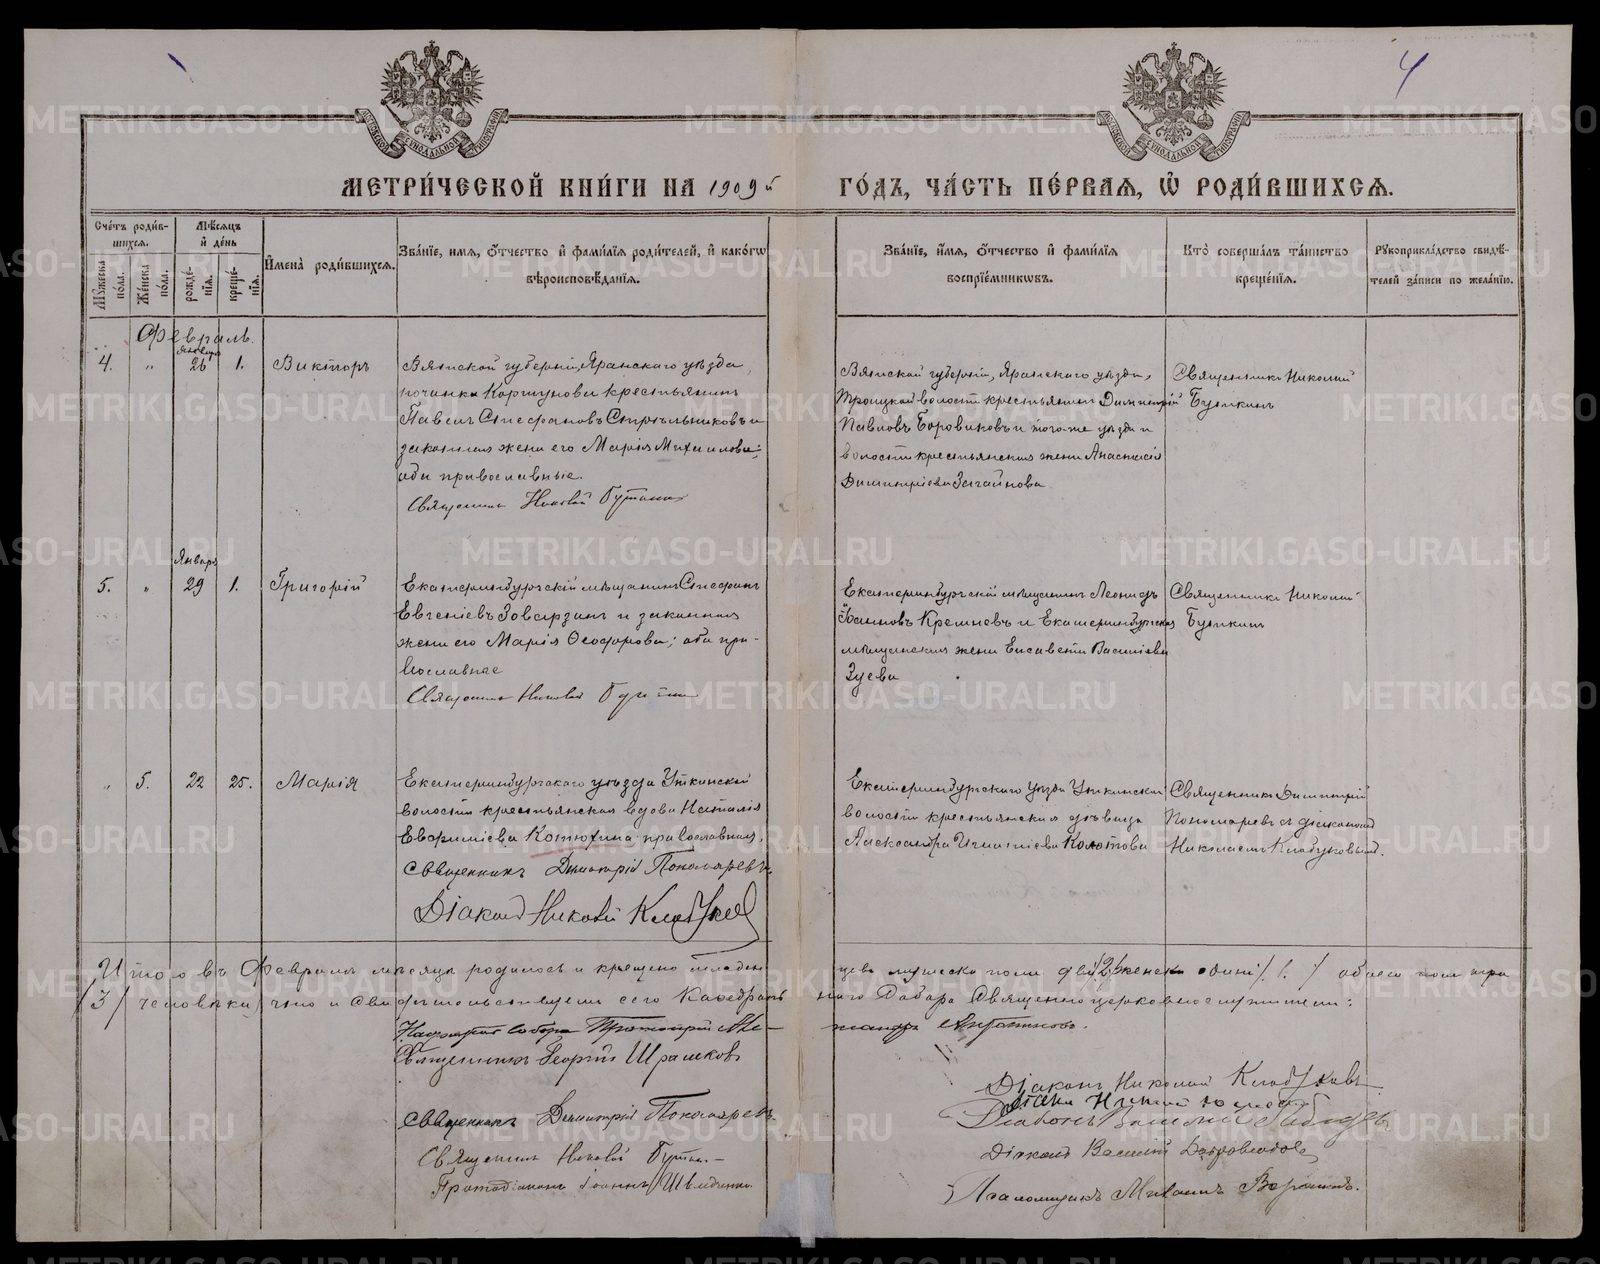 4
МОСКОВСКОЙ СѴНОДАЛЬНОЙ ТИПОГРАФІИ
МОСКОВСКОЙ СѴНОДАЛЬНОЙ ТИПОГРАФІИ
МЕТРИ́ЧЕСКОЙ КНИ́ГИ НА 1909й ГО́ДЪ, ЧА́СТЬ ПЕ́РВАЯ, Ѡ҆ РОДИ́ВШИХСѦ.
Сче́тъ роди́в-
шихсѧ.
Мꙋ́жеска по́ла.
Же́нска по́ла.
Мѣ́сѧцъ
и҆ де́нь
рожде́-
нїѧ.
креще́-
нїѧ.
И҆мена̀ роди́вшихсѧ.
Зва́нїе, и҆мѧ, ѻ҆́тчество и҆ фами́лїѧ роди́телей, и҆ како́гѡ
вѣроисповѣ́данїѧ.
Зва́нїе, и҆́мѧ, ѻ҆́тчество и҆ фами́лїѧ
воспрїе́мникѡвъ.
Кто̀ соверша́лъ та́инство
креще́нїѧ.
Рꙋкоприкла́дство свидѣ́-
телей за́писи по жела́нїю.
Февраль.
4. „ Января 26 1. Викторъ
Вятской губерніи, Яранскаго уѣзда,
починка Коршунова крестьянинъ
Павелъ Стефановъ Стрѣльниковъ и
законная жена его Марія Михаилова;
оба православные.
Священникъ Николай Буткинъ
Вятской губерніи, Яранскаго уѣзда,
Троицкой волости крестьянинъ Димитрій
Павловъ Боровиковъ и того-же уѣзда и
волости крестьянская жена Анастасія
Димитріева Загайнова
Священникъ Николай
Буткинъ
5. „ Января 29 1. Григорій
Екатеринбургскій мѣщанинъ Стефанъ
Евгеніевъ Заварзинъ и законная
жена его Марія Ѳеодорова; оба пра-
вославные
Священникъ Николай Буткинъ
Екатеринбургскій мѣщанинъ Леонидъ
Іоанновъ Кремлевъ и Екатеринбургская
мѣщанская жена Елисавета Василіева
Зуева
Священникъ Николай
Буткинъ
„ 5. 22 25. Марія
Екатеринбургскаго уѣзда Уткинской
волости крестьянская вдова Наталія
Евфиміева Котюхина православная.
Священникъ Димитрій Пономаревъ
Діаконъ Николай Клабуковъ
Екатеринбургскаго уѣзда Уткинской
волости крестьянская дѣвица
Александра Игнатіева Колотова
Священникъ Димитрій
Пономаревъ съ діакономъ
Николаемъ Клабуковымъ.
Итого въ Февралѣ мѣсяцѣ родилось и крещено младен-
цевъ мужеска пола два /2/ женска одинъ /1./ обоего пола три
/3/ человѣка, что и свидѣтельствуемъ сего Кафедраль-
наго Собора Священноцерковнослужители:
Настоятель собора Протоіерей Але-
ксандръ
Священникъ Георгій
Священникъ Димитрій Пономаревъ
Священникъ Николай Буткинъ
Протодіаконъ Іоаннъ
Діаконъ Николай Клабуковъ
Діаконъ
Діаконъ
Діаконъ Василій
Псаломщикъ Михаилъ